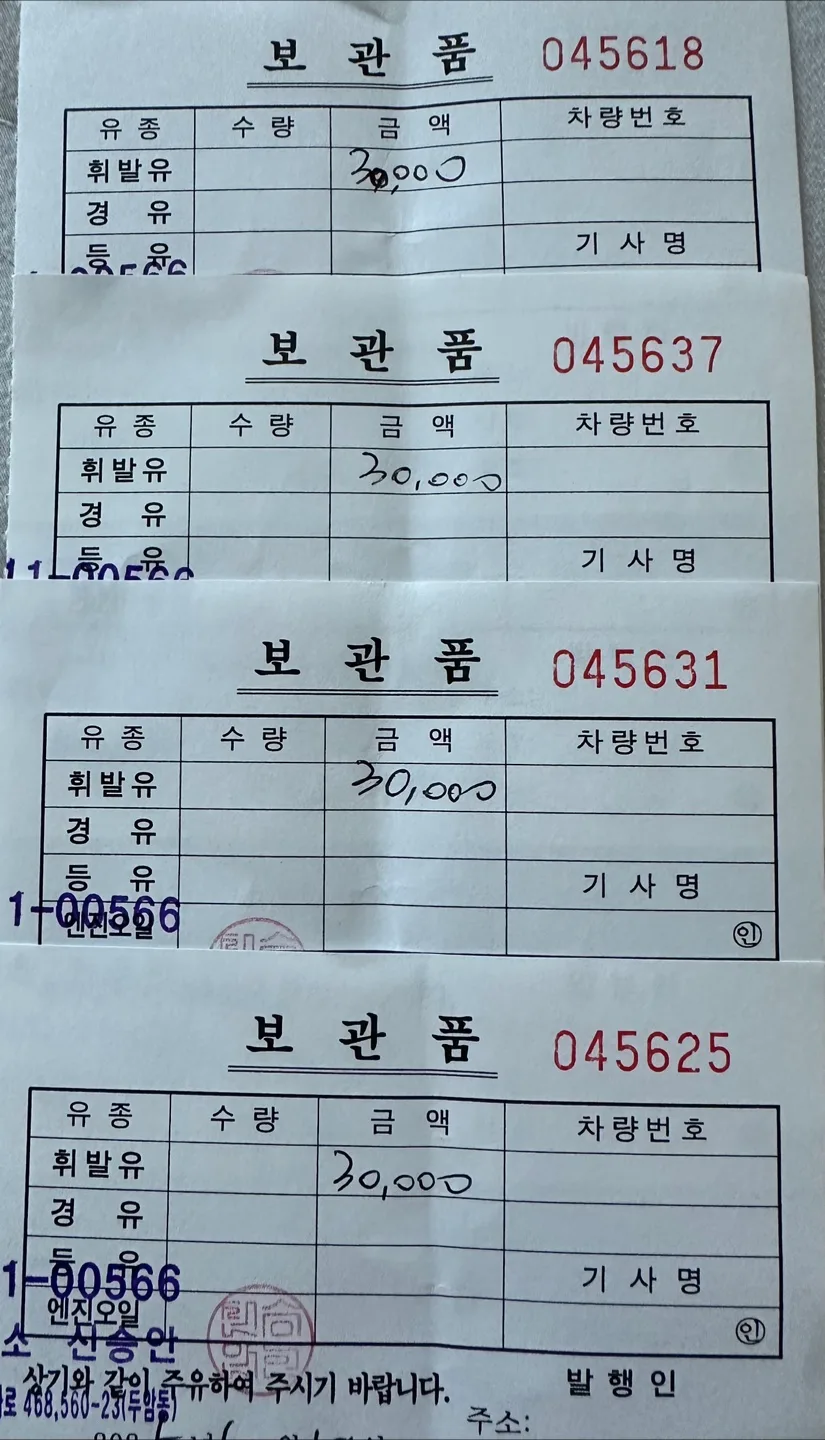 보 관 품 045618
유 종 수 량 금 액 차량번호
휘발유 30,000
경 유
등 유 기 사 명
보 관 품 045637
유 종 수 량 금 액 차량번호
휘발유 30,000
경 유
등 유 기 사 명
11-00566
보 관 품 045631
유 종 수 량 금 액 차량번호
휘발유 30,000
경 유
등 유 기 사 명
1-00566
엔진오일 인
보 관 품 045625
유 종 수 량 금 액 차량번호
휘발유 30,000
경 유
등 유 기 사 명
1-00566
엔진오일 인
소 신승안
상기와 같이 주유하여 주시기 바랍니다. 발 행 인
로 468,560-23(두암동)
주소: